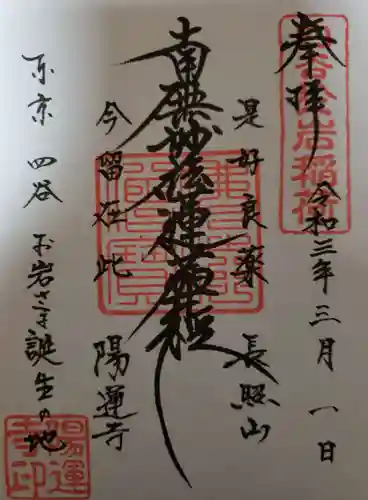 奉拝
令和三年三月一日
是好良薬 長照山
南無妙法蓮華経
今留在此 陽運寺
東京 四谷 お岩さま誕生の地
陽運寺印